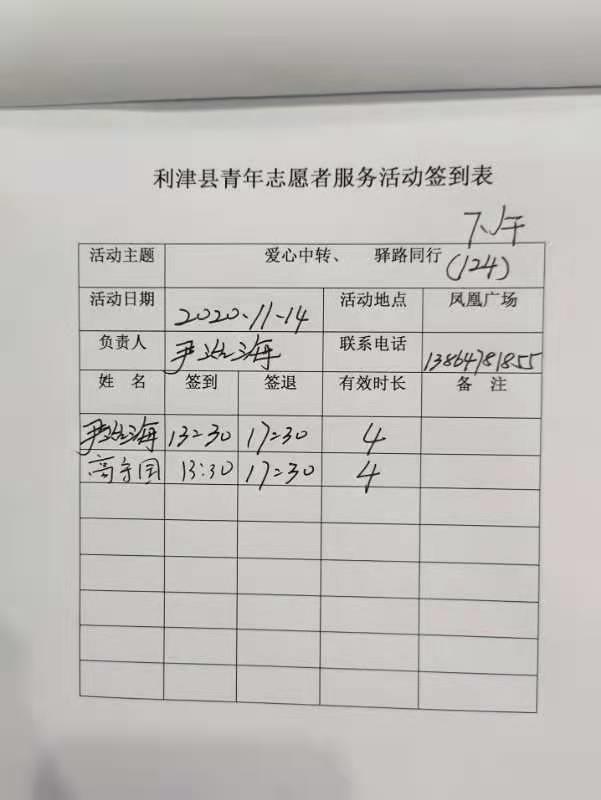 利津县青年志愿者服务活动签到表
下午
活动主题 爱心中转、 驿路同行 (124)
活动日期 2020.11.14 活动地点 凤凰广场
负责人 尹 海 联系电话 13864781855
姓 名 签到 签退 有效时长 备 注
尹 海 13:30 17:30 4
高守国 13:30 17:30 4